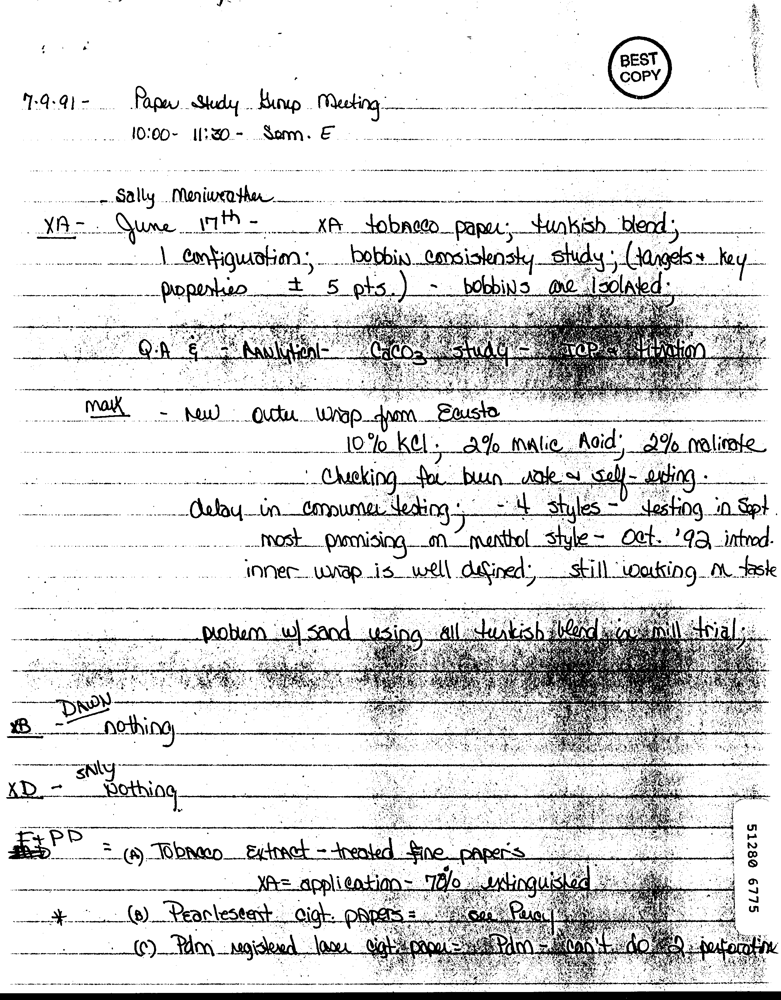 BEST
COPY
7-9-91 - Paper Study Group Meeting
10:00 - 11:30 - Sem. E
- Sally Meriweather
XA - June 17th - XA tobacco paper; turkish blend;
1 configuration; bobbin consistensty study; (targets + key
properties ± 5 pts.) - bobbins are isolated;
Q.A & - Analytical - CaCO3 study - ICP & titration
mark - New outer wrap from Ecusta
10% KCl; 2% Malic Acid; 2% malinate
Checking for burn rate & self-exting.
delay in consumer testing; - 4 styles - testing in Sept.
most promising on menthol style - Oct. '92 introd.
inner wrap is well defined; still working on taste
problem w/ sand using all turkish blend in mill trial;
DAWN
XB - nothing
SAlly
XD - Nothing
F+PD = (A) Tobacco Extract - treated fine papers
XA = application - 70% extinguished
* (B) Pearlescent cigt. papers = see Percy
(C) Pdm registered laser cigt. paper = Pdm - can't do 2 perforation
51280 6775